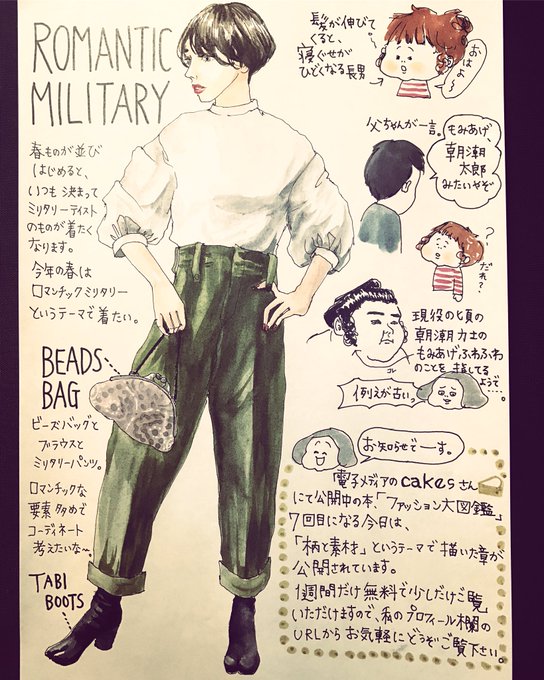 ROMANTIC
MILITARY
春ものが並び
はじめると、
いつも決まって
ミリタリーテイスト
のものが着たく
なります。
今年の春は
ロマンチックミリタリー
というテーマで着たい。
BEADS
BAG
ビーズバッグと
ブラウスと
ミリタリーパンツ。
ロマンチックな
要素多めで
コーディネート
考えたいな〜。
TABI
BOOTS
髪が伸びて
くると、
寝ぐせが
ひどくなる長男
おはよ〜
父ちゃんが一言。
もみあげ
朝潮
太郎
みたいやぞ
?
だれ?
現役の頃の
朝潮力士の
もみあげふわふわ
のことを指してる
ようで……。
コレ
例えが古い。
お知らせでーす。
電子メディアのcakesさん
にて公開中の本、「ファッション大図鑑」
7回目になる今日は、
「柄と素材」というテーマで描いた章が
公開されています。
1週間だけ無料で少しだけご覧
いただけますので、私のプロフィール欄の
URLからお気軽にどうぞご覧下さい。